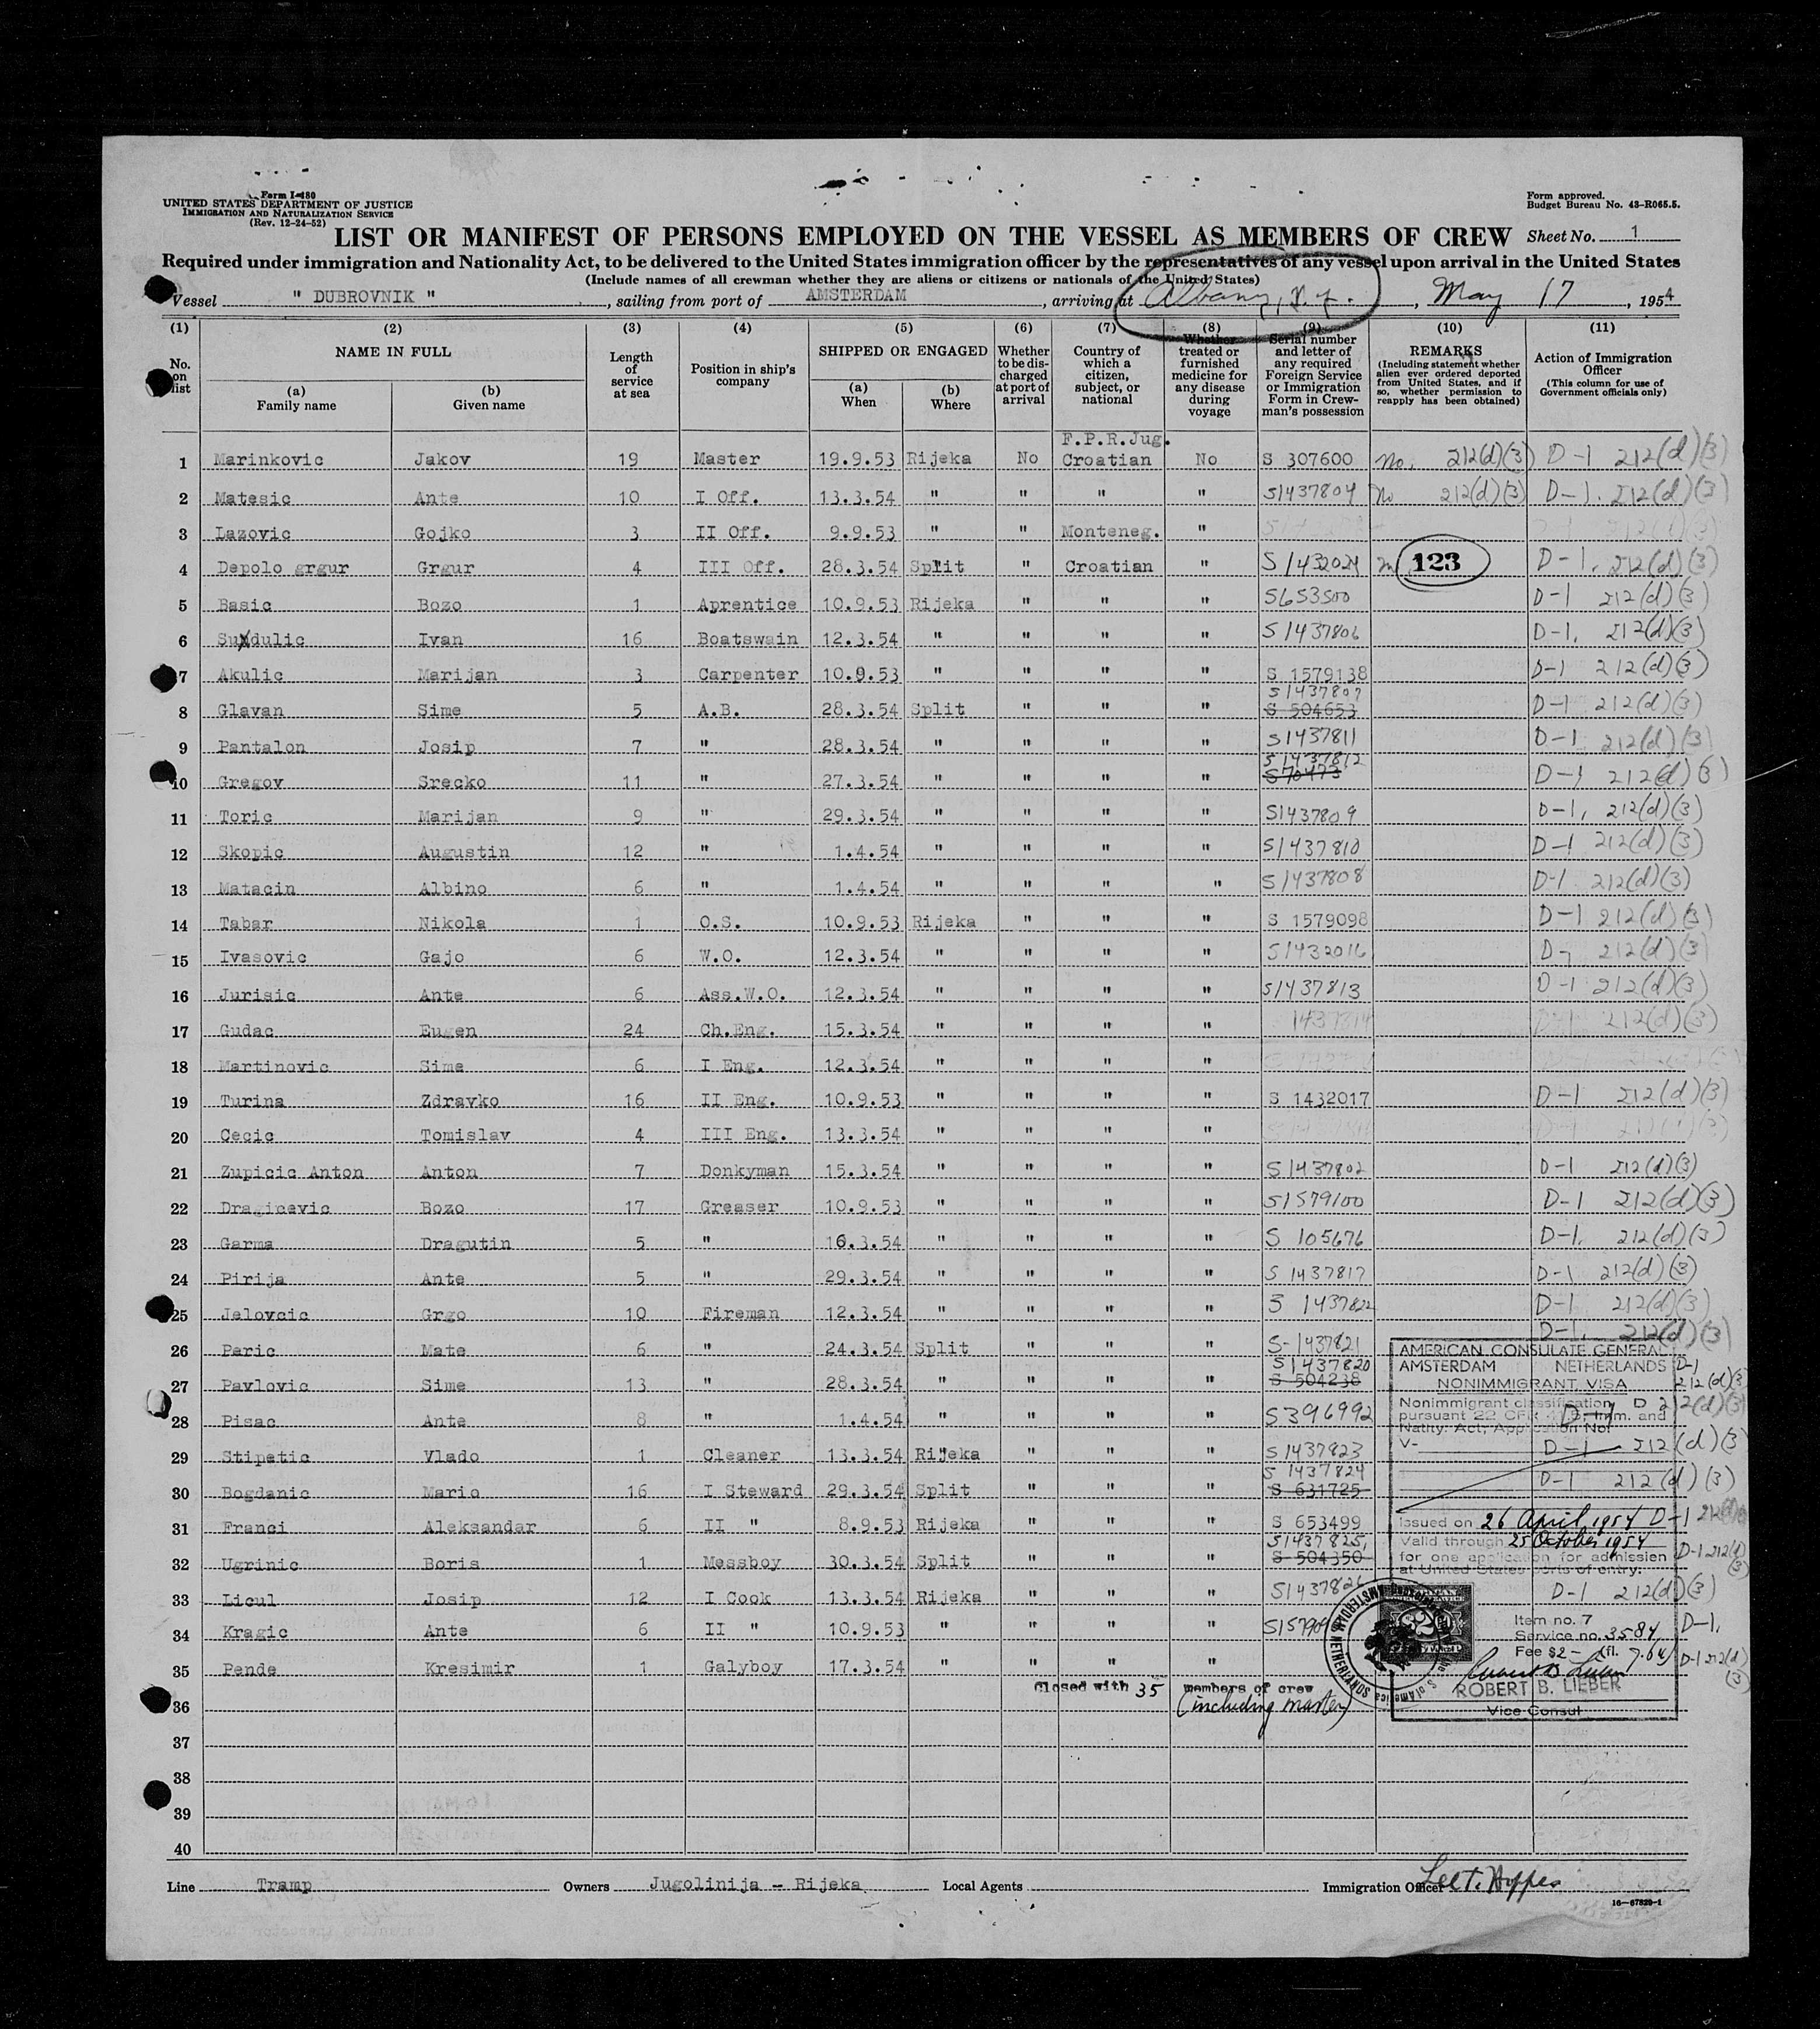 Form I-480
UNITED STATES DEPARTMENT OF JUSTICE
IMMIGRATION AND NATURALIZATION SERVICE
(Rev. 12-24-52)
Form approved.
Budget Bureau No. 43-R065.5.
LIST OR MANIFEST OF PERSONS EMPLOYED ON THE VESSEL AS MEMBERS OF CREW Sheet No. 1
Required under immigration and Nationality Act, to be delivered to the United States immigration officer by the representatives of any vessel upon arrival in the United States
(Include names of all crewman whether they are aliens or citizens or nationals of the United States)
Vessel " DUBROVNIK ", sailing from port of AMSTERDAM, arriving at Albany, N.Y., May 17, 1954
(1) (2) (3) (4) (5) (6) (7) (8) (9) (10) (11)
No. on list
NAME IN FULL
(a) Family name
(b) Given name
Length of service at sea
Position in ship's company
SHIPPED OR ENGAGED
(a) When
(b) Where
Whether to be discharged at port of arrival
Country of which a citizen, subject, or national
Whether treated or furnished medicine for any disease during voyage
Serial number and letter of any required Foreign Service or Immigration Form in Crewman's possession
REMARKS
(Including statement whether alien ever ordered deported from United States, and if so, whether permission to reapply has been obtained)
Action of Immigration Officer
(This column for use of Government officials only)
F.P.R.Jug.
1 Marinkovic Jakov 19 Master 19.9.53 Rijeka No Croatian No S 307600 No. 212(d)(3) D-1 212(d)(3)
2 Matesic Ante 10 I Off. 13.3.54 " " " " S1437804 No 212(d)(3) D-1. 212(d)(3)
3 Lazovic Gojko 3 II Off. 9.9.53 " " Monteneg. " 212(d)(3)
4 Depolo grgur Grgur 4 III Off. 28.3.54 Split " Croatian " S 1432024 123 D-1. 212(d)(3)
5 Basic Bozo 1 Aprentice 10.9.53 Rijeka " " " S653500 D-1 212(d)(3)
6 Sundulic Ivan 16 Boatswain 12.3.54 " " " " S1437806 D-1. 212(d)(3)
7 Akulic Marijan 3 Carpenter 10.9.53 " " " " S 1579138 D-1 212(d)(3)
S1437807
8 Glavan Sime 5 A.B. 28.3.54 Split " " " S 504653 D-1 212(d)(3)
9 Pantalon Josip 7 " 28.3.54 " " " " S1437811 D-1 212(d)(3)
S1437812
10 Gregov Srecko 11 " 27.3.54 " " " " S70473 D-1 212(d)(3)
11 Toric Marijan 9 " 29.3.54 " " " " S1437809 D-1, 212(d)(3)
12 Skopic Augustin 12 " 1.4.54 " " " " S1437810 D-1 212(d)(3)
13 Matacin Albino 6 " 1.4.54 " " " " S1437808 D-1 212(d)(3)
14 Tabar Nikola 1 O.S. 10.9.53 Rijeka " " " S 1579098 D-1 212(d)(3)
15 Ivasovic Gajo 6 W.O. 12.3.54 " " " " S1432016 D- 212(d)(3)
16 Jurisic Ante 6 Ass.W.O. 12.3.54 " " " " S1437813 D-1 212(d)(3)
17 Gudac Eugen 24 Ch.Eng. 15.3.54 " " " " 1437814 D-1 212(d)(3)
18 Martinovic Sime 6 I Eng. 12.3.54 " " " "
19 Turina Zdravko 16 II Eng. 10.9.53 " " " " S 1432017 D-1 212(d)(3)
20 Cecic Tomislav 4 III Eng. 13.3.54 " " " " D-1 212(d)(3)
21 Zupicic Anton Anton 7 Donkyman 15.3.54 " " " " S1437802 D-1 212(d)(3)
22 Dragicevic Bozo 17 Greaser 10.9.53 " " " " S1579100 D-1 212(d)(3)
23 Garma Dragutin 5 " 16.3.54 " " " " S 105676 D-1. 212(d)(3)
24 Pirija Ante 5 " 29.3.54 " " " " S 1437817 D-1 212(d)(3)
25 Jelovcic Grgo 10 Fireman 12.3.54 " " " " S 1437822 D-1 212(d)(3)
26 Peric Mate 6 " 24.3.54 Split " " " S-1437821 D-1. 212(d)(3)
S1437820
27 Pavlovic Sime 13 " 28.3.54 " " " " S 504238 D-1 212(d)(3)
28 Pisac Ante 8 " 1.4.54 " " " " S396992 D-1 212(d)(3)
29 Stipetic Vlado 1 Cleaner 13.3.54 Rijeka " " " S1437823 D-1 212(d)(3)
S 1437824
30 Bogdanic Mario 16 I Steward 29.3.54 Split " " " S 631725 D-1 212(d)(3)
31 Franci Aleksandar 6 II " 8.9.53 Rijeka " " " S 653499 D-1
S1437825,
32 Ugrinic Boris 1 Messboy 30.3.54 Split " " " S 504350 D-1 212(d)(3)
33 Licul Josip 12 I Cook 13.3.54 Rijeka " " " S1437826 D-1 212(d)(3)
34 Kragic Ante 6 II " 10.9.53 " " " " D-1.
35 Pende Kresimir 1 Galyboy 17.3.54 " " " " D-1 212(d)(3)
Closed with 35 members of crew
(including master)
36
37
38
39
40
AMERICAN CONSULATE GENERAL
AMSTERDAM NETHERLANDS
NONIMMIGRANT VISA
Nonimmigrant classification D
pursuant 22 CFR Imm. and
Natlty. Act, Application No.
V-
Issued on 26 April 1954
Valid through 25 October 1954
for one application for admission
at United States ports of entry.
Item no. 7
Service no. 3584
Fee $2 = fl. 7.64
ROBERT B. LIEBER
Vice Consul
AMSTERDAM, NETHERLANDS
Line Tramp Owners Jugolinija - Rijeka Local Agents Immigration Officer Lee T. Hoppes
16-67829-1